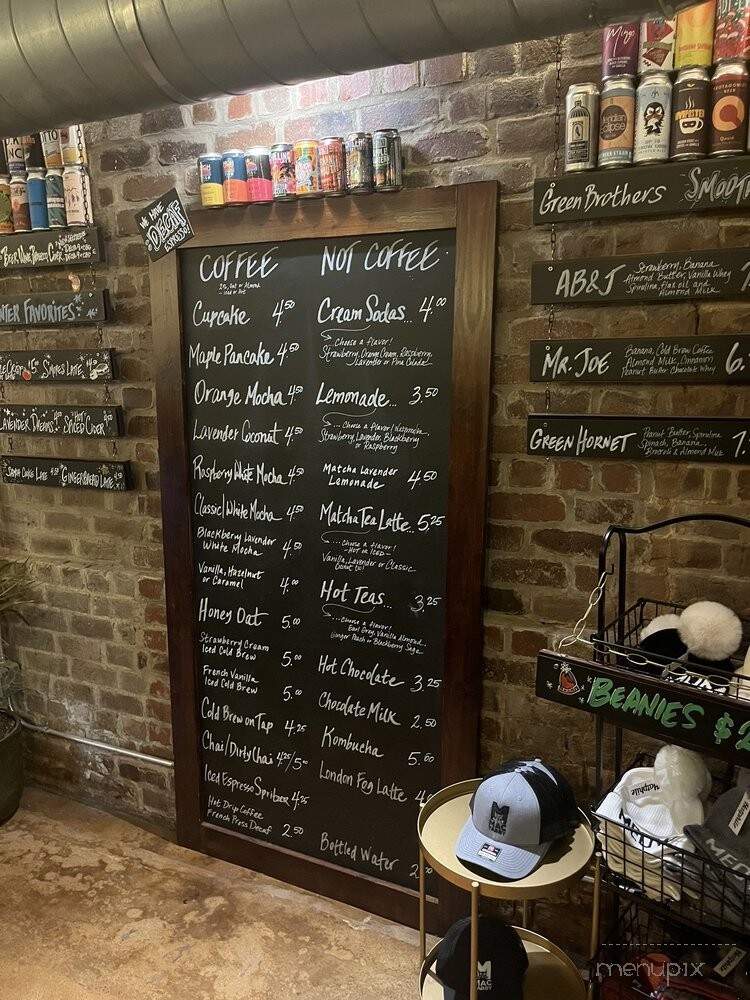 WE HAVE
DECAF
ESPRESSO!
COFFEE
2%, Oat or Almond
- Iced or Hot
Cupcake 4.50
Maple Pancake 4.50
Orange Mocha 4.50
Lavender Coconut 4.50
Raspberry White Mocha 4.50
Classic/White Mocha 4.50
Blackberry Lavender
White Mocha 4.50
Vanilla, Hazelnut
or Caramel 4.00
Honey Oat 5.00
Strawberry Cream
Iced Cold Brew 5.00
French Vanilla
Iced Cold Brew 5.00
Cold Brew on Tap 4.25
Chai/Dirty Chai 4.25/5.00
Iced Espresso Spritzer 4.25
Hot Drip Coffee
French Press Decaf 2.50
NOT COFFEE
Cream Sodas... 4.00
... Choose a Flavor!
Strawberry, Orange Cream, Raspberry,
Lavender or Pina Colada
Lemonade... 3.50
Strawberry, Lavender, Blackberry
or Raspberry
Matcha Lavender
Lemonade 4.50
Matcha Tea Latte... 5.25
... Choose a Flavor!
- HOT or ICED -
Vanilla, Lavender or Classic
Hot Teas... 3.25
... Choose a Flavor!
Earl Grey, Vanilla Almond,
Ginger Peach or Blackberry Sage
Hot Chocolate 3.25
Chocolate Milk 2.50
Kombucha 5.00
London Fog Latte 4
Bottled Water 2
Green Brothers Smoot
AB&J Strawberry, Banana
Almond Butter, Vanilla Whey
Spirulina, Flax oil and
Almond Milk
Mr. Joe Banana, Cold Brew Coffee
Almond Milk, Cinnamon
Peanut Butter Chocolate Whey 6.
Green Hornet Peanut Butter, Spirulina
Spinach, Banana,
Broccoli & Almond Milk 7.
Beanies $2
nter Favorites
Lavender Dreams
Spiced Cider
Gingerbread Latte
menupix